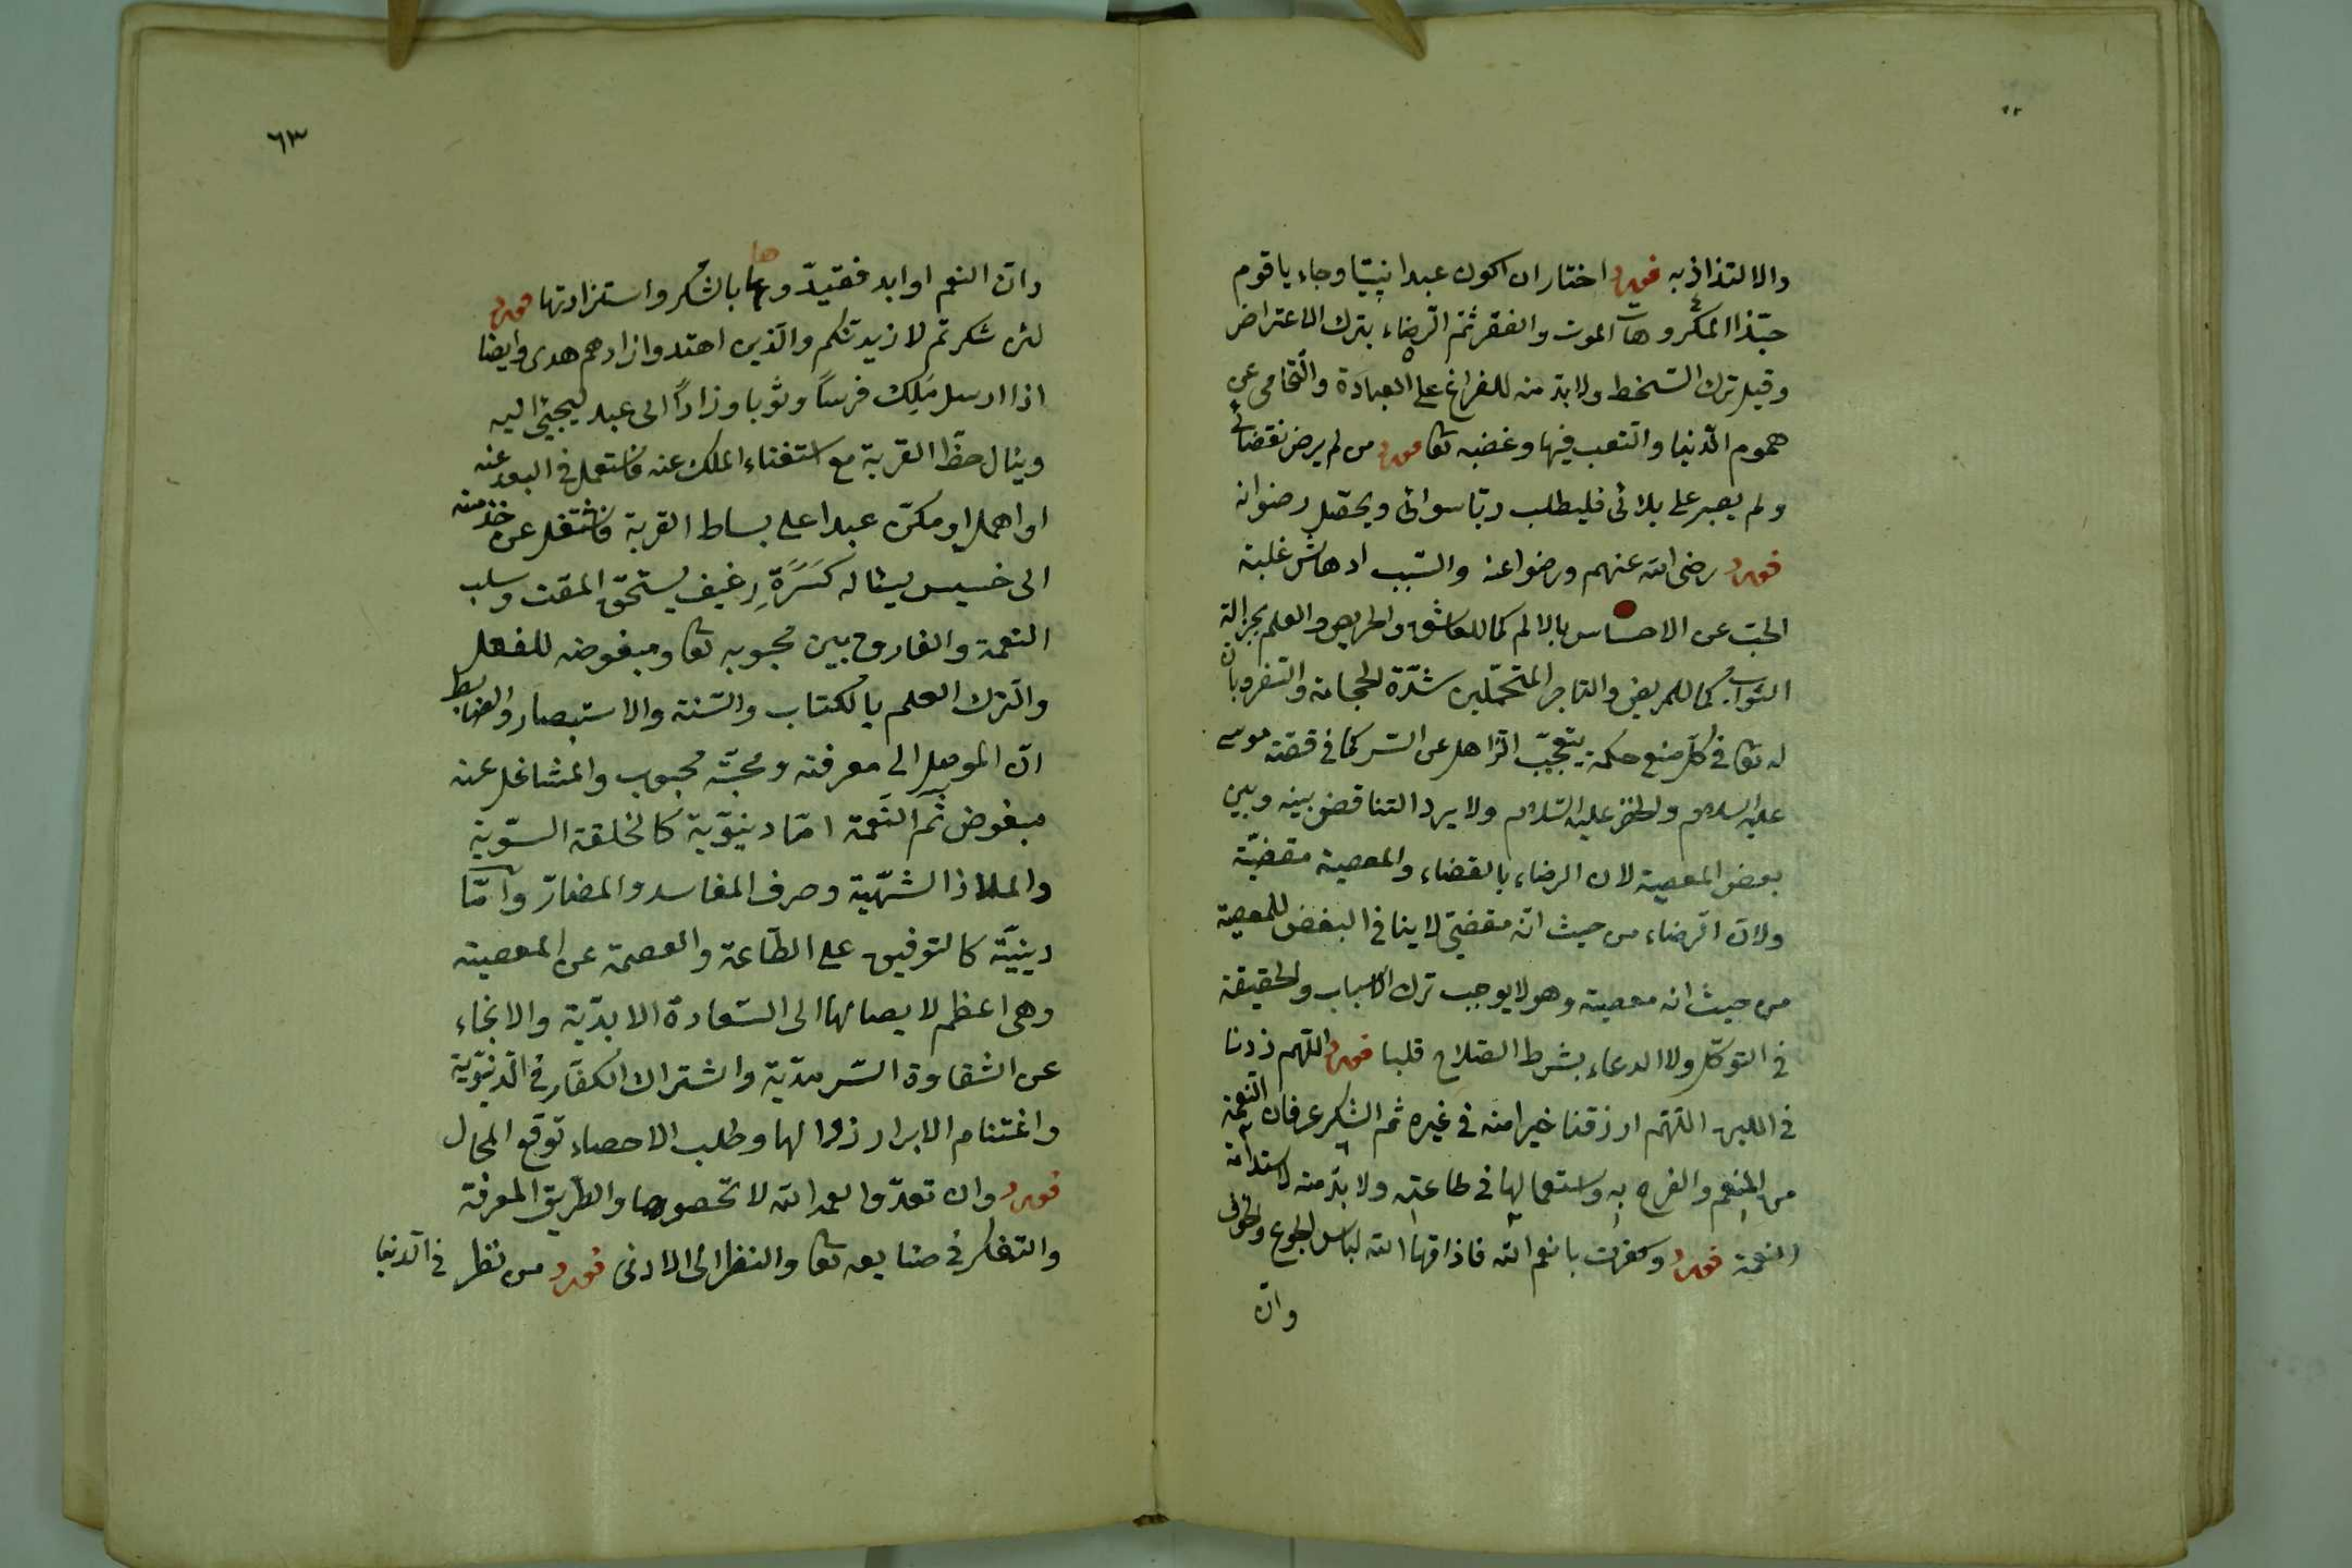 والالتذاذ به فورد اختار ان اكون عبدا نبيّا وجاء يا قوم
حبّذا المكروهات الموت والفقر ثم الرّضاء بترك الاعتراض
وقيل ترك السّخط ولا بدّ منه للفراغ على العبادة والتّحامى عن
هموم الدّنيا والتعب فيها وغضبه تعا فورد من لم يرض بقضائى
ولم يصبر على بلائى فليطلب ربّا سوائى ويحصل رضوانه
فورد رضى الله عنهم ورضوا عنه والسّبب ادهاش غلبة
الحبّ عن الاحساس بالالم كما للعاشق والحريص والعلم بجزالة
الثواب كما للمريض والتاجر المتحمّلين شدّة الحجامة والسّفر وبان
له تعا فى كلّ صنع حكمة يتعجّب الذاهل عن السّر كما فى قصّة موسى
عليه السلام والخضر عليه السّلام ولا يرد التناقض بينه وبين
بعض المعصية لان الرضاء بالقضاء والمعصية مقضيّة
ولانّ الرّضاء من حيث انّه مقضىّ لا ينافى البغض للمعصية
من حيث انه معصية وهو لا يوجب ترك الاسباب والحقيقة
فى التوكّل ولا الدعاء بشرط الصّلاح قلبا فورد اللّهم زدنا
فى اللبن اللّهم ارزقنا خيرا منه فى غيره ثم الشكر عرفان النّعمة
من المنعم والفرح به واستعمالها فى طاعته ولا بدّ منه لاستدامة
النعمة فورد وكفرت بانعم الله فاذاقها الله لباس الجوع والخوف
وانّ
٦٣
وانّ النعم اوابد فقيّدوها بالشكر واستزادتها فورد
لئن شكرتم لازيدنّكم والّذين اهتدوا زادهم هدى وايضا
اذا ارسل مَلِك فرسًا وثوبا وزادًا الى عبد ليجيئ اليه
وينال حظّ القربة مع استغناء الملك عنه فاستعمل فى البعد عنه
او اهمل او مكّن عبدا على بساط القربة فاشتغل عن خدمته
الى خسيس يساله كسرة رغيف يستحقّ المقت وسلب
النعمة والفارق بين محبوبه تعا ومبغوضه للفعل
والترك العلم بالكتاب والسّنة والاستبصار والضابط
انّ الموصل الى معرفته ومحبّته محبوب والمشاغل عنه
مبغوض ثم النّعمة امّا دنيوّية كالخلقة السّوية
والملاذا الشهّية وصرف المفاسد والمضارّ وامّا
دينيّة كالتوفيق على الطّاعة والعصمة عن المعصية
وهى اعظم لايصالها الى السّعادة الابديّة والانجاء
عن الشقاوة السّرمديّة واشتراك الكفّار فى الدّنيّوية
واغتنام الابرار زوالها وطلب الاحصاء توقع المحال
فورد وان تعدّوا نعمة الله لا تحصوها والطّريق المعرفة
والتفكر فى صنايعه تعا والنظر الى الادنى فورد من نظر فى الدّنيا